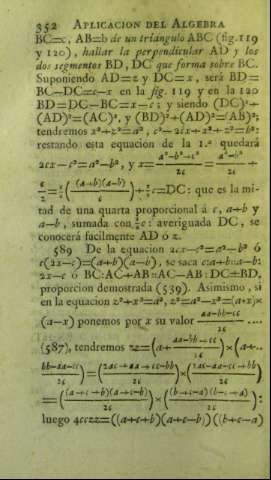 352 APLICACION DEL ALGEBRA
BC=c, AB=b de un triángulo ABC (fig. 119
y 120), hallar la perpendicular AD y los
dos segmentos BD, DC que forma sobre BC.
Suponiendo AD=z y DC=x, será BD=
BC-DC=c-x en la fig. 119 y en la 120
BD=DC-BC=x-c; y siendo (DC)²+
(AD)²=(AC)², y (BD)²+(AD)²=(AB)²;
tendremos x²+z²=a², c²-2cx+x²+z²=b²:
restando esta equacion de la 1.ª quedará
2cx-c²=a²-b², y x=(a²-b²+c²)/2c=(a²-b²)/2c+
c/2=½((a+b)(a-b)/c)+½c=DC: que es la mi-
tad de una quarta proporcional á c, a+b y
a-b, sumada con ½c: averiguada DC, se
conocerá facilmente AD ó z.
589 De la equacion 2cx-c²=a²-b² ó
c(2x-c)=(a+b)(a-b), se saca c:a+b::a-b:
2x-c ó BC:AC+AB::AC-AB:DC±BD,
proporcion demostrada (539). Asimismo, si
en la equacion z²+x²=a², z²=a²-x²=(a+x)×
(a-x) ponemos por x su valor (aa-bb+cc)/2c ....
(587), tendremos zz=(a+(aa-bb+cc)/2c)×(a+..
(bb-aa-cc)/2c)=((2ac+aa+cc-bb)/2c)×((2ac-aa-cc+bb)/2c)
=(((a+c+b)(a+c-b))/2c)×(((b+c-a)(b-c+a))/2c):
luego 4cczz=((a+c+b)(a+c-b))((b+c-a)